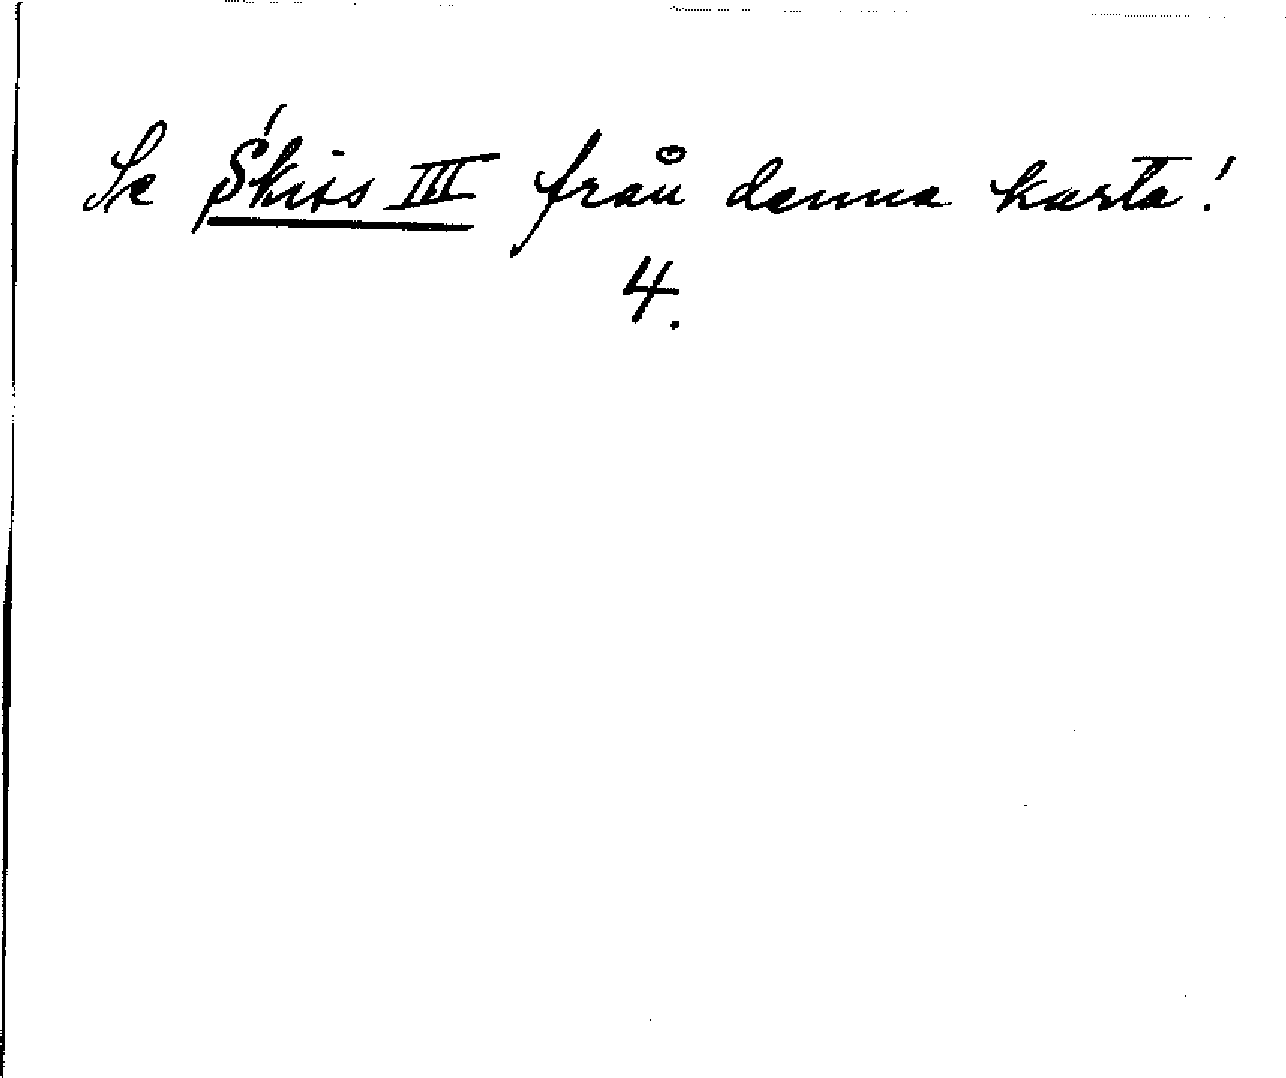 Se Skiss III från denna karta!
4.